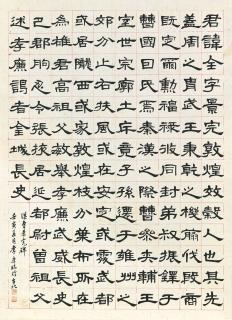 君諱全字景完敦煌效穀人也其先
盖周之胄武王秉乾之機翦伐殷商
既定爾勳福祿攸同封弟叔振鐸于
曹國因氏焉秦漢之際曹參夾輔王
室世宗廓土斥竟子孫遷于雍州之
郊分止右扶風或在安定或處武都
或居隴西或家敦煌枝分葉布所在
為雄君高祖父敏舉孝廉武威長史
巴郡朐忍令張掖居延都尉曾祖父
述孝廉謁者金城長史